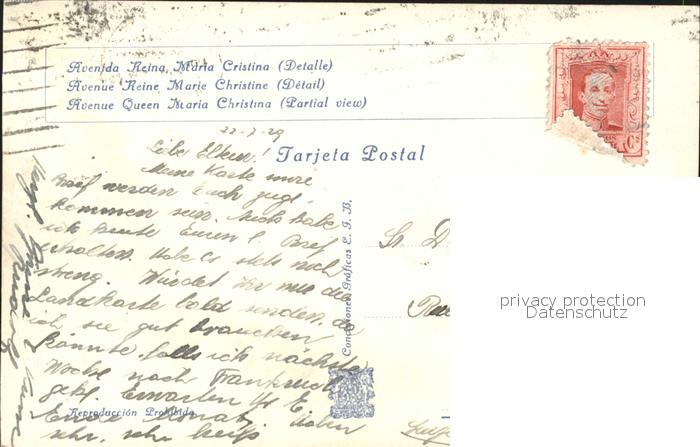 Avenida Reina Maria Cristina (Detalle)
Avenue Reine Marie Christine (Détail)
Avenue Queen Maria Christina (Partial view)
22-7-29
Liebe Eltern!
Tarjeta Postal
Meine Karte
Brief werden Euch zugl.
kommen sein. Auch habe
ich heute Euren l. Brief
erhalten. Habe es stets noch
streng. Würdet Ihr mir die
Landkarte bald senden, da
ich sie gut brauchen
könnte, falls ich nächste
Woche nach Frankreich
gehe. Erwarten
Ende Monat
sehr, sehr heiss
Concesiones Gráficas E. I. B.
Reproducción Prohibida
Cs
privacy protection
Datenschutz